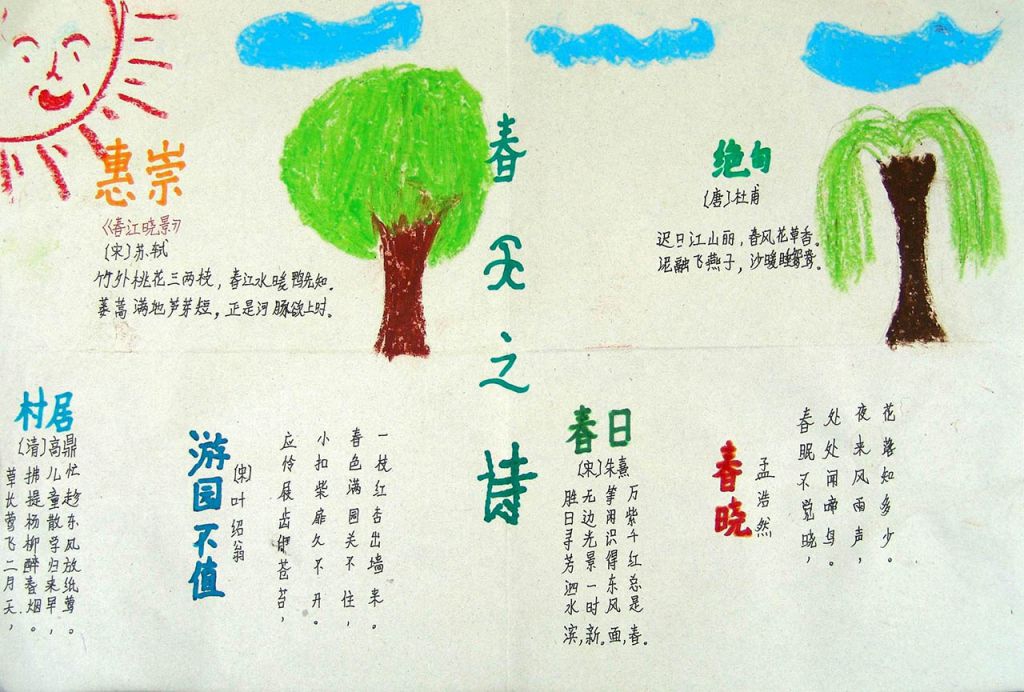 春天之诗
惠崇
《春江晓景》
〔宋〕苏轼
竹外桃花三两枝，春江水暖鸭先知。
蒌蒿满地芦芽短，正是河豚欲上时。
绝句
〔唐〕杜甫
迟日江山丽，春风花草香。
泥融飞燕子，沙暖睡鸳鸯。
村居
〔清〕高鼎
草长莺飞二月天，
拂提杨柳醉春烟。
儿童散学归来早，
忙趁东风放纸鸢。
游园不值
〔宋〕叶绍翁
应伶屐齿印苍苔，
小扣柴扉久不开。
春色满园关不住，
一枝红杏出墙来。
春日
〔宋〕朱熹
胜日寻芳泗水滨，
无边光景一时新。
等闲识得东风面，
万紫千红总是春。
春晓
孟浩然
春眠不觉晓，
处处闻啼鸟。
夜来风雨声，
花落知多少。